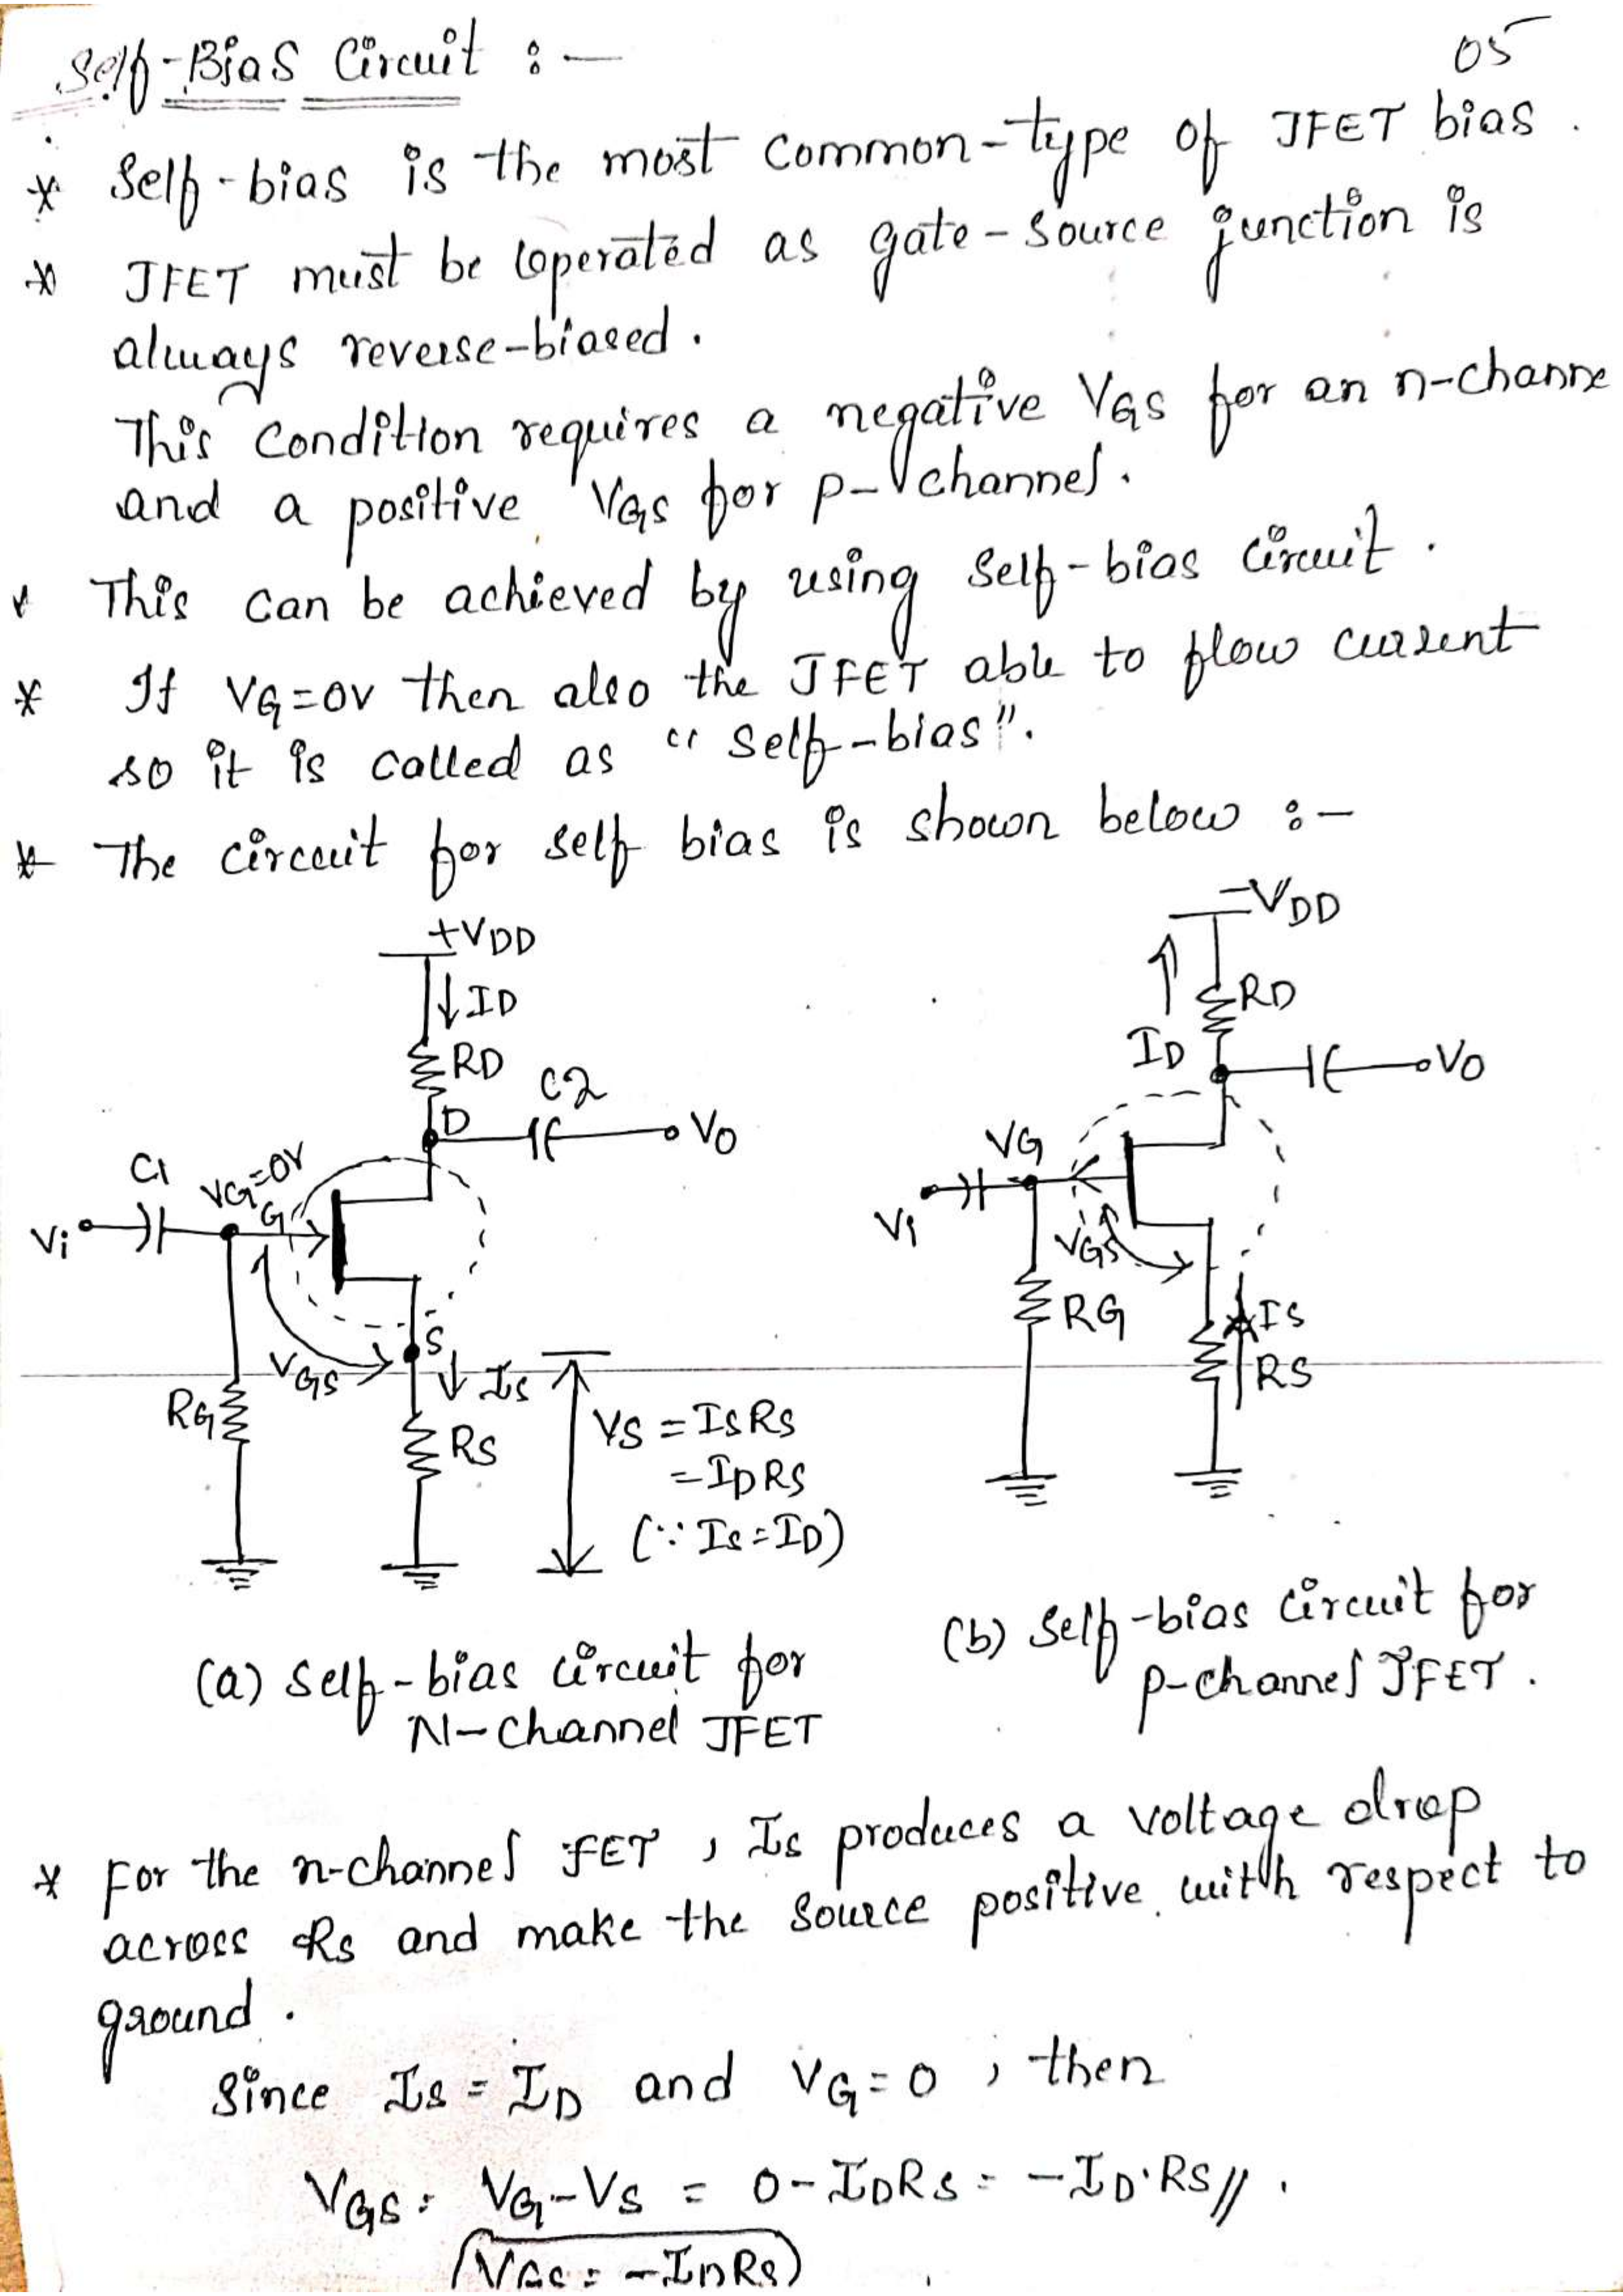 Self-Bias Circuit :-
05
* Self-bias is the most common-type of JFET bias.
* JFET must be operated as gate-source junction is
always reverse-biased.
This Condition requires a negative VGS for an n-channe
and a positive VGS for p-channel.
* This can be achieved by using Self-bias circuit.
* If VG=0V then also the JFET able to flow current
so it is called as "Self-bias".
* The circuit for self bias is shown below :-
+VDD
ID
RD
C2
D
VO
C1
VG=0V
G
Vi
VGS
S
IS
RG
RS
VS = ISRS
=IDRS
(∵ IS=ID)
(a) Self-bias circuit for
N-Channel JFET
-VDD
RD
ID
VO
VG
Vi
VGS
RG
IS
RS
(b) Self-bias circuit for
p-channel JFET.
* For the n-channel FET, IS produces a voltage drop
across RS and make the source positive with respect to
ground.
Since IS = ID and VG=0, then
VGS = VG-VS = 0-IDRS = -ID·RS//.
VGS = -IDRS